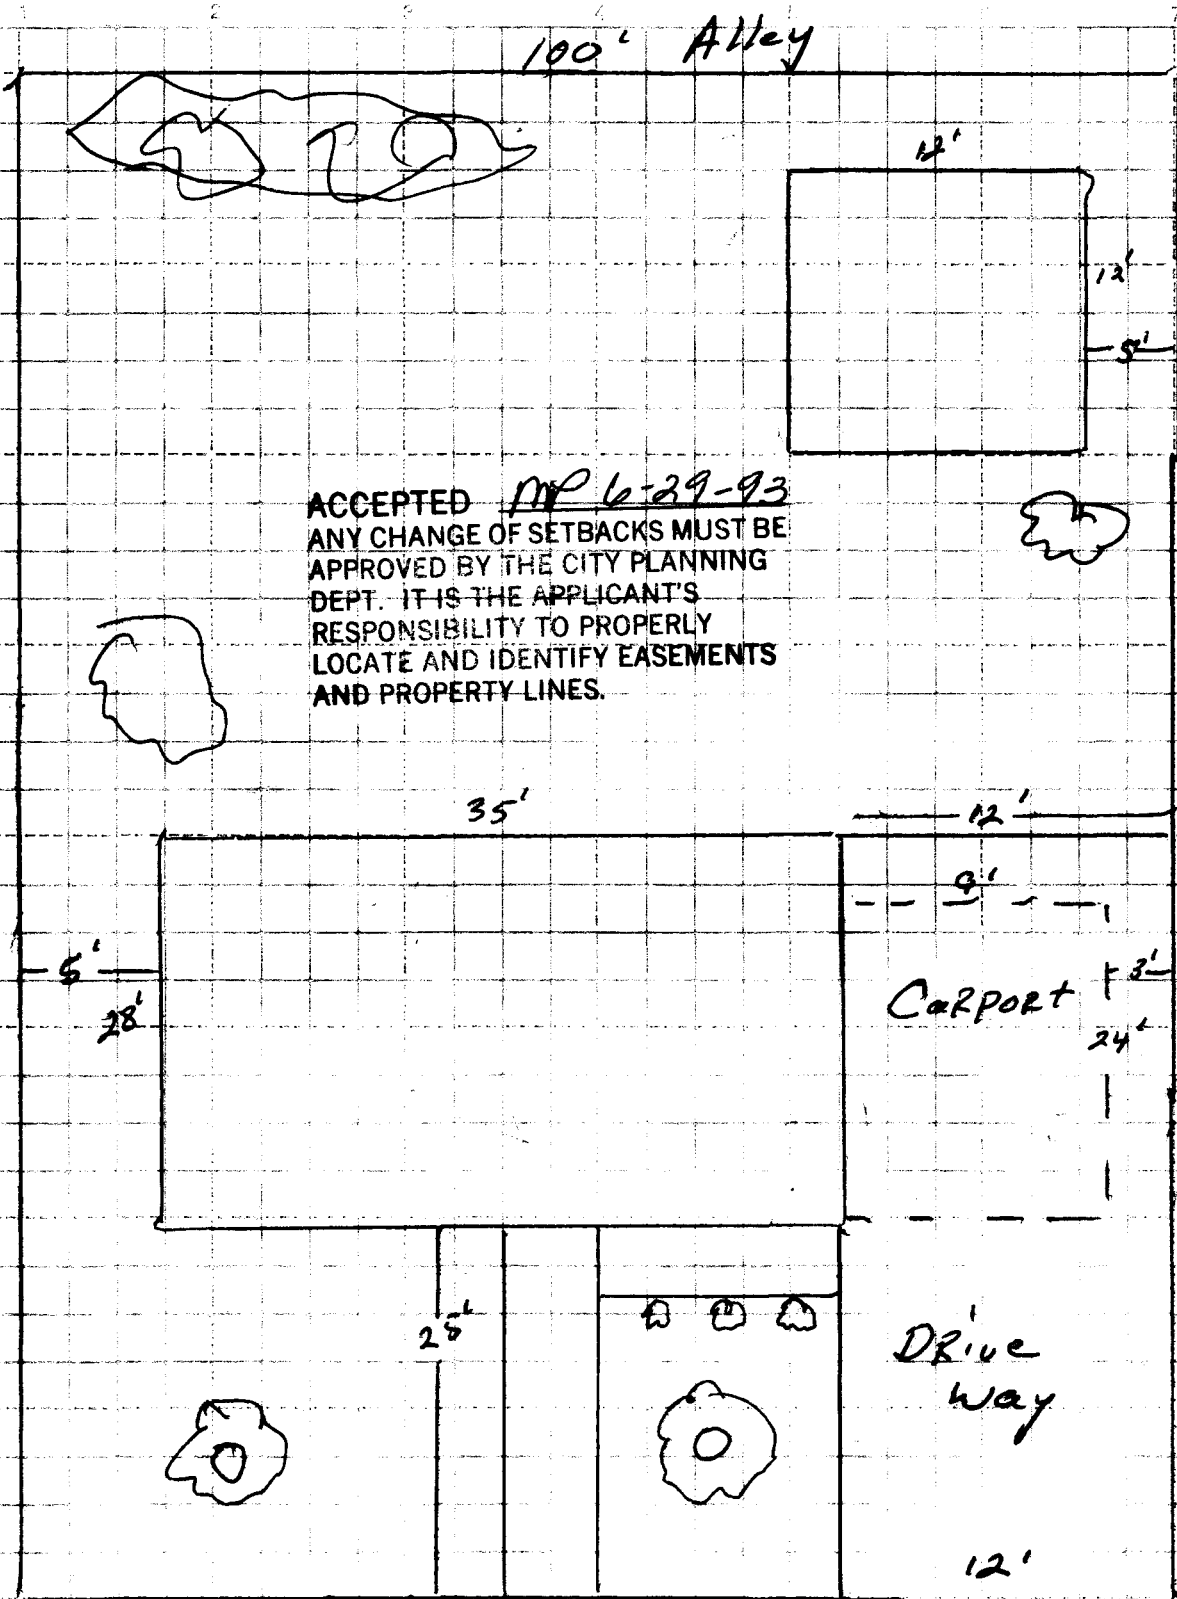 100' Alley
12'
12'
5'
ACCEPTED MP 6-29-93
ANY CHANGE OF SETBACKS MUST BE
APPROVED BY THE CITY PLANNING
DEPT. IT IS THE APPLICANT'S
RESPONSIBILITY TO PROPERLY
LOCATE AND IDENTIFY EASEMENTS
AND PROPERTY LINES.
35'
12'
9'
5'
3'
CARPORT
28'
24'
25'
DRive
way
12'